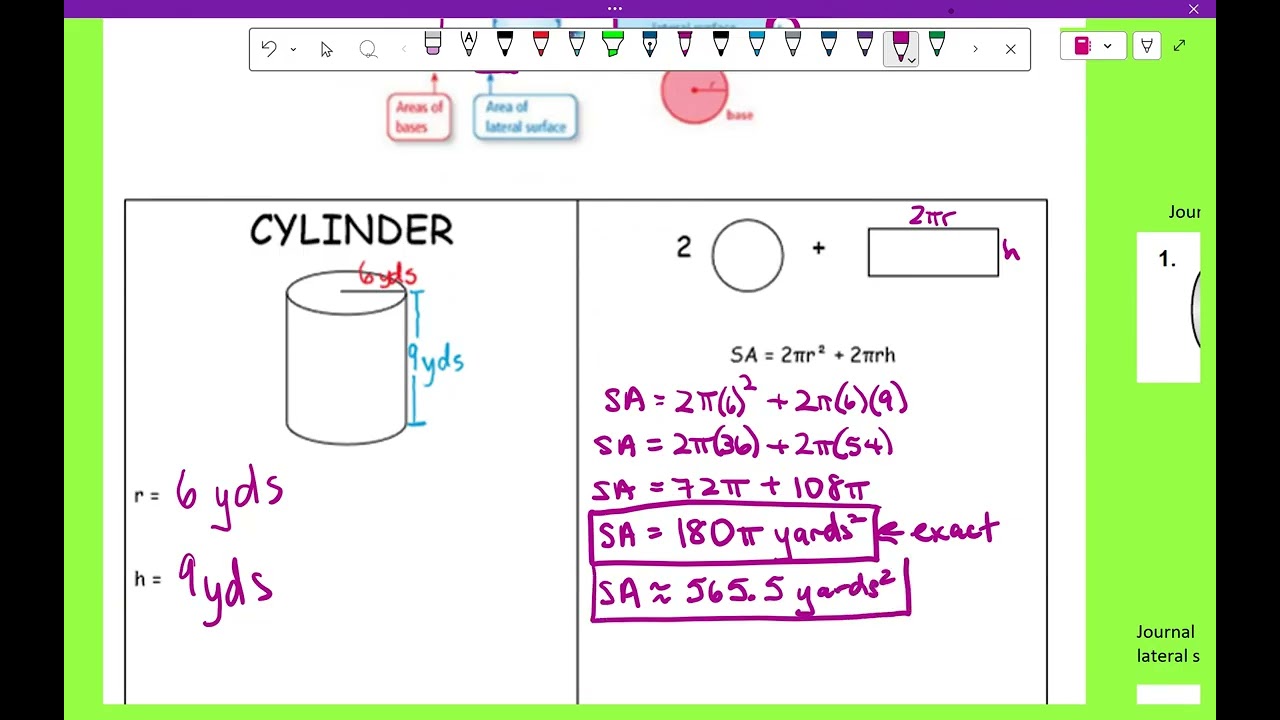 Areas of
bases
Area of
lateral surface
r
base
CYLINDER
6 yds
9 yds
r = 6 yds
h = 9 yds
2 + 2πr
h
SA = 2πr² + 2πrh
SA = 2π(6)² + 2π(6)(9)
SA = 2π(36) + 2π(54)
SA = 72π + 108π
SA = 180π yards² ← exact
SA ≈ 565.5 yards²
Jour
1.
Journal
lateral s